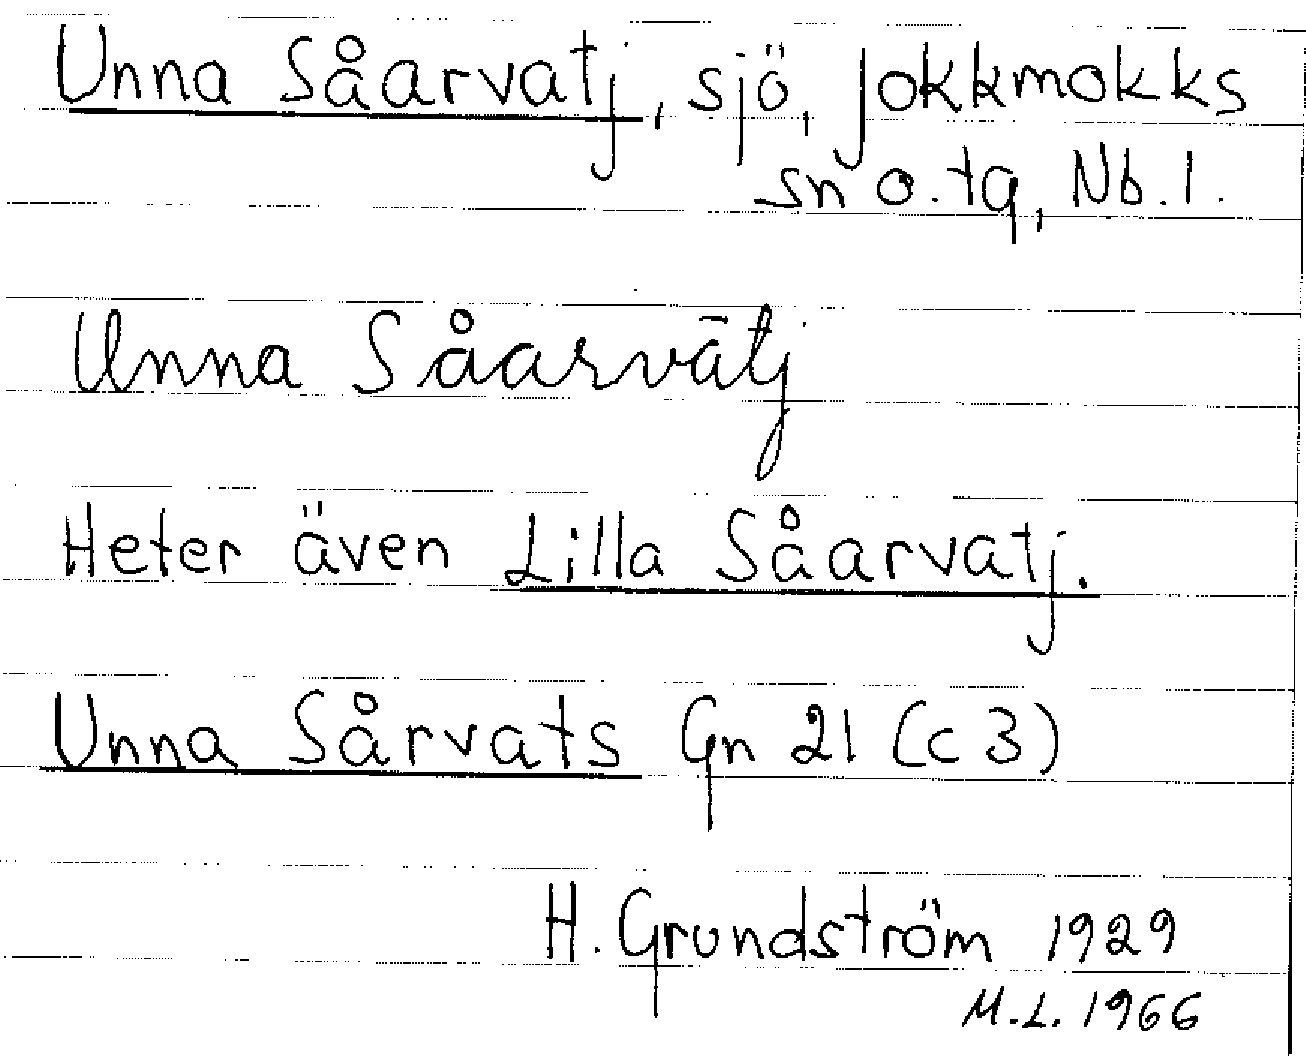 Unna Såarvatj, sjö, Jokkmokks
sn o. tg, Nb. l.
Unna Såarvātj
Heter även Lilla Såarvatj.
Unna Sårvats Gn 21 (c 3)
H. Grundström 1929
M.L. 1966